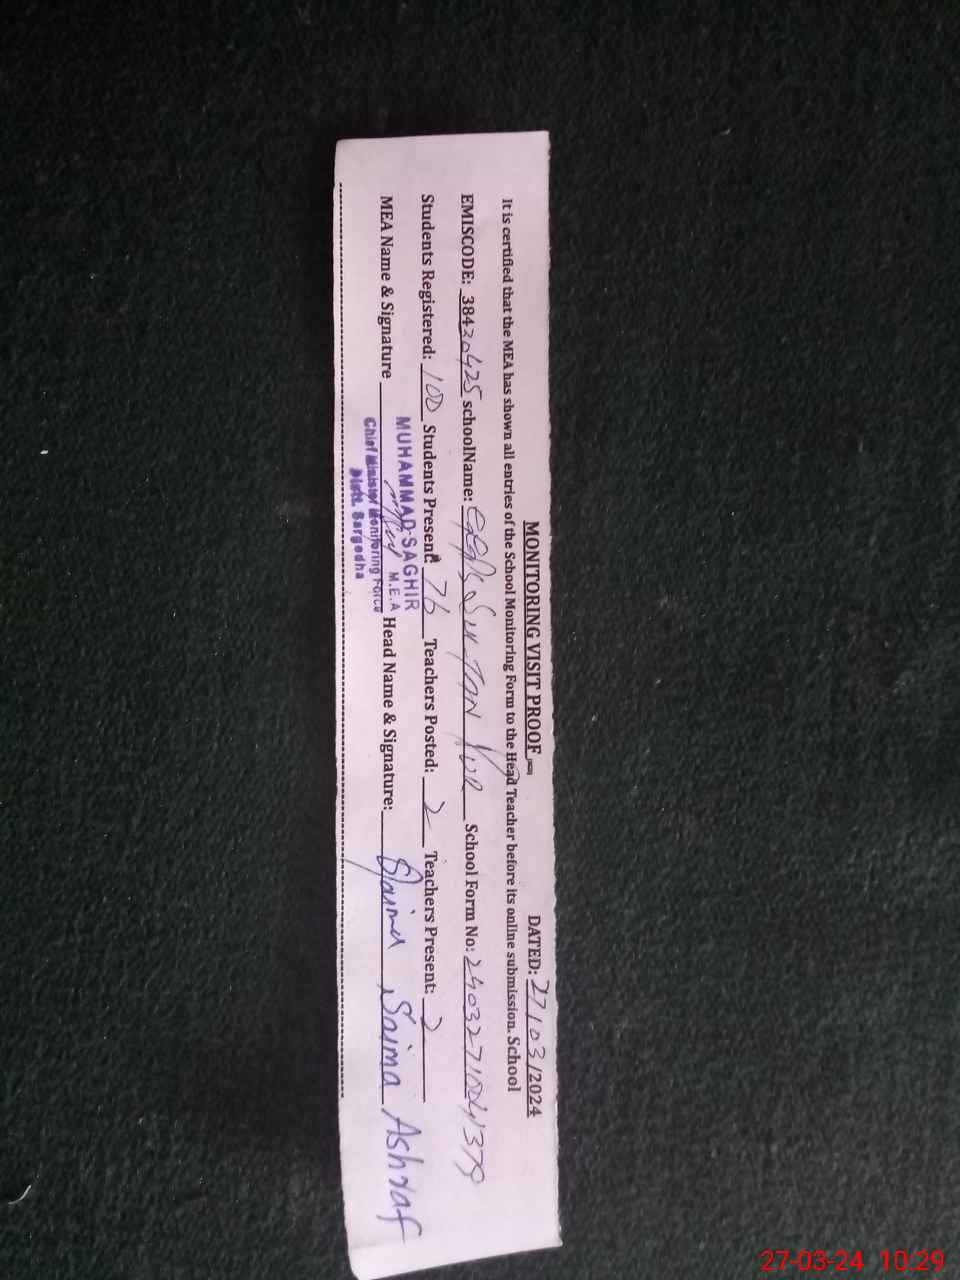 MONITORING VISIT PROOF DATED: 27/03/2024
It is certified that the MEA has shown all entries of the School Monitoring Form to the Head Teacher before its online submission. School
EMISCODE: 38430425 schoolName: GGPS SULTAN PUR School Form No: 2403271004379
Students Registered: 100 Students Present: 76 Teachers Posted: 2 Teachers Present: 2
MEA Name & Signature Head Name & Signature: Saima Saima Ashraf
MUHAMMAD SAGHIR
M.E.A
Chief Minister Monitoring Force
Distt. Sargodha
27-03-24 10:29